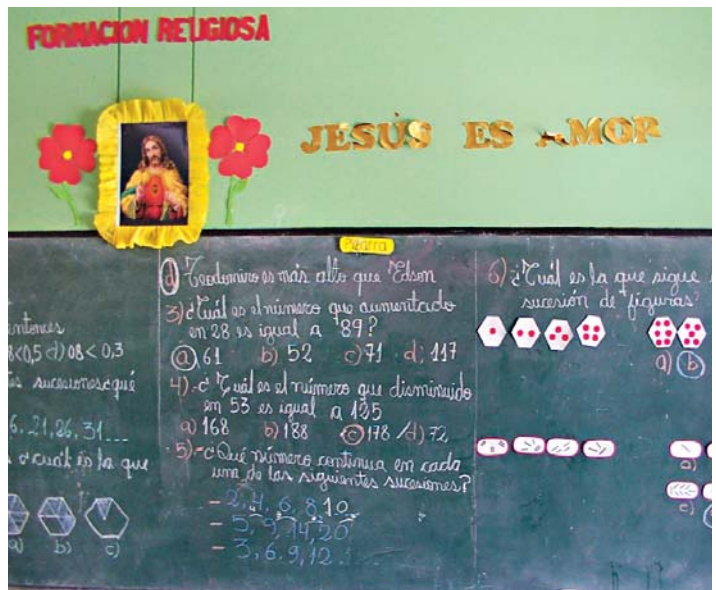 FORMACION RELIGIOSA
JESÚS ES AMOR
Pizarra
entonces
8<0,5 d) 08 < 0,3
sucesiones qué
6, 21, 26, 31...
cuál es la que
a) b) c)
d) Teodomiro es más alto que Edson
3) ¿Cuál es el número que aumentado
en 28 es igual a 89?
a) 61 b) 52 c) 71 d) 117
4).- ¿Cuál es el número que disminuido
en 53 es igual a 125
a) 168 b) 188 c) 178 d) 72
5).- ¿Qué número continua en cada
una de las siguientes sucesiones?
- 2, 4, 6, 8, 10
- 5, 9, 14, 20
- 3, 6, 9, 12
6) ¿Cuál es la que sigue
sucesión de figuras?
a) b)
a)
c)